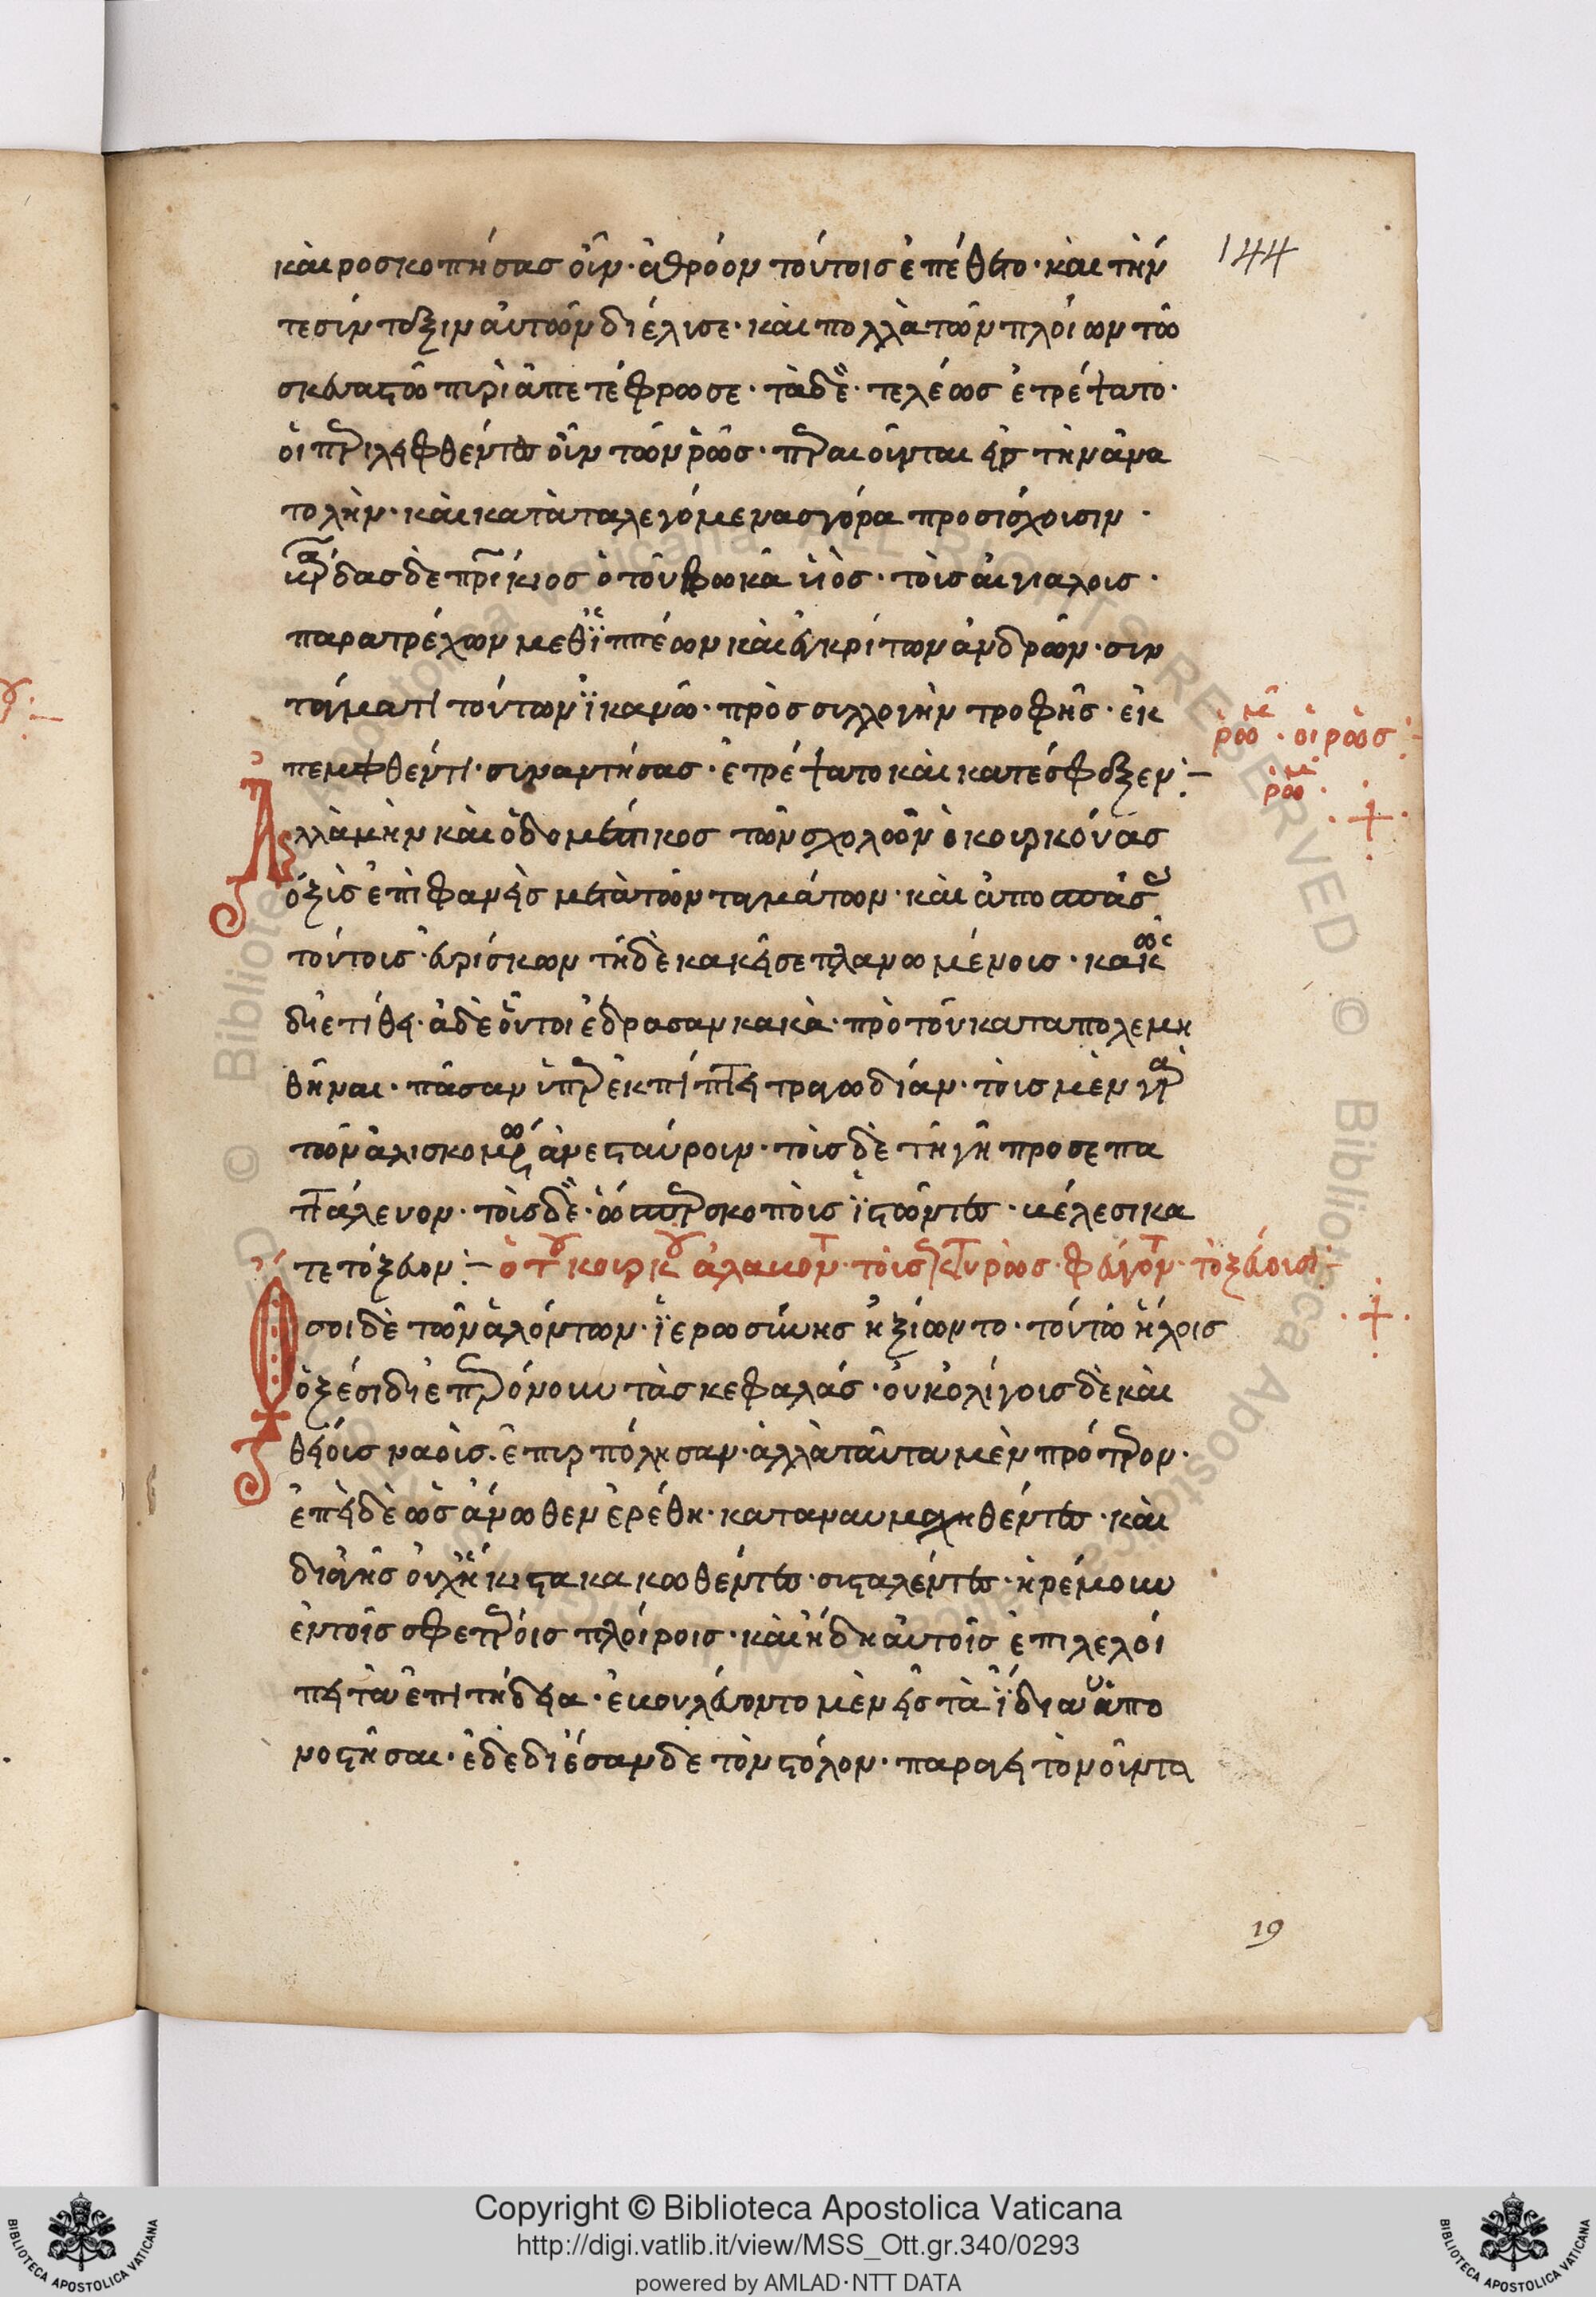 144
καιροσκοπήσας οὖν· ἀθρόον τούτοις ἐπέθετο· καὶ τήν
τε σύνταξιν αὐτῶν διέλυσε· καὶ πολλὰ τῶν πλοίων τῶ
σκευαστῶ πυρὶ ἀπετέφρωσε· τὰ δὲ· τελέως ἐτρέψατο·
οἱ περιλειφθέντες οὖν τῶν ῥῶς· περαιοῦνται εἰς τὴν ἀνα
τολὴν· καὶ κατὰ τὰ λεγόμενα σγόρα προσίσχουσιν·
βάρδας δὲ πατρίκιος ὁ τοῦ φωκᾶ υἱὸς· τοῖς αἰγιαλοις·
παρατρέχων μεθ ἱππέων καὶ ἐγκρίτων ἀνδρῶν· συν
τάγματι τούτων ἱκανῶ· πρὸς συλλογὴν τροφῆς· ἐκ
πεμφθέντι· συναντήσας· ἐτρέψατο καὶ κατέσφαξεν:–
ῥῶμ· οἱ ῥῶς:–
ῥῶμ·
Ἀλλὰ μὴν καὶ ὁ δομέστικος τῶν σχολῶν ὁ κουρκούας
ὀξὺς ἐπιφανεὶς μετὰ τῶν ταγμάτων· καὶ ἀποσπάσι
τούτοις εὑρίσκων τῆδε κακεῖσε πλανωμένοις· κακῶς
διετίθει· ἃ δὲ οὗτοι ἔδρασαν κακὰ· πρὸ τοῦ καταπολεμη
θῆναι· πᾶσαν ὑπερεκπίπτει τραγωδίαν· τοῖς μὲν γὰρ
τῶν ἁλισκομένων ἀνεσταύρουν· τοῖς δὲ τῆ γῆ προσεπα
ττάλευον· τοῖς δὲ· ὥσπερ σκοποῖς ἱστῶντες· βέλεσι κα
τετόξευον:– ὁ τοῦ κουρκούα
Ὅσοι δὲ τῶν ἁλόντων· ἱερωσύνης ἠξίωντο· τούτω ἥλοις
ὀξέσι διεπερόνουν τὰς κεφαλάς· οὐκ ὀλίγοις δὲ καὶ
θείοις ναοῖς· ἐπυρπόλησαν· ἀλλὰ ταῦτα μὲν πρότερον·
ἐπεὶ δὲ ὡς ἄνωθεν ἐρέθη· καταναυμαχηθέντες· καὶ
διὰ γῆς οὐχ ἥκιστα κακωθέντες· συσταλέντες· ἠρέμουν
ἐν τοῖς σφετέροις πλοίροις· καὶ ἤδη αὐτοῖς ἐπιλελοί
πει τὰ ἐπιτήδεια· ἐβουλεύοντο μὲν εἰς τὰ ἴδια ὑαπο
νοστῆσαι· ἐδεδιέσαν δε τὸν στόλον· παρα γειτονοῦντα
19
Copyright © Biblioteca Apostolica Vaticana
http://digi.vatlib.it/view/MSS_Ott.gr.340/0293
powered by AMLAD·NTT DATA
BIBLIOTECA APOSTOLICA VATICANA
BIBLIOTECA APOSTOLICA VATICANA